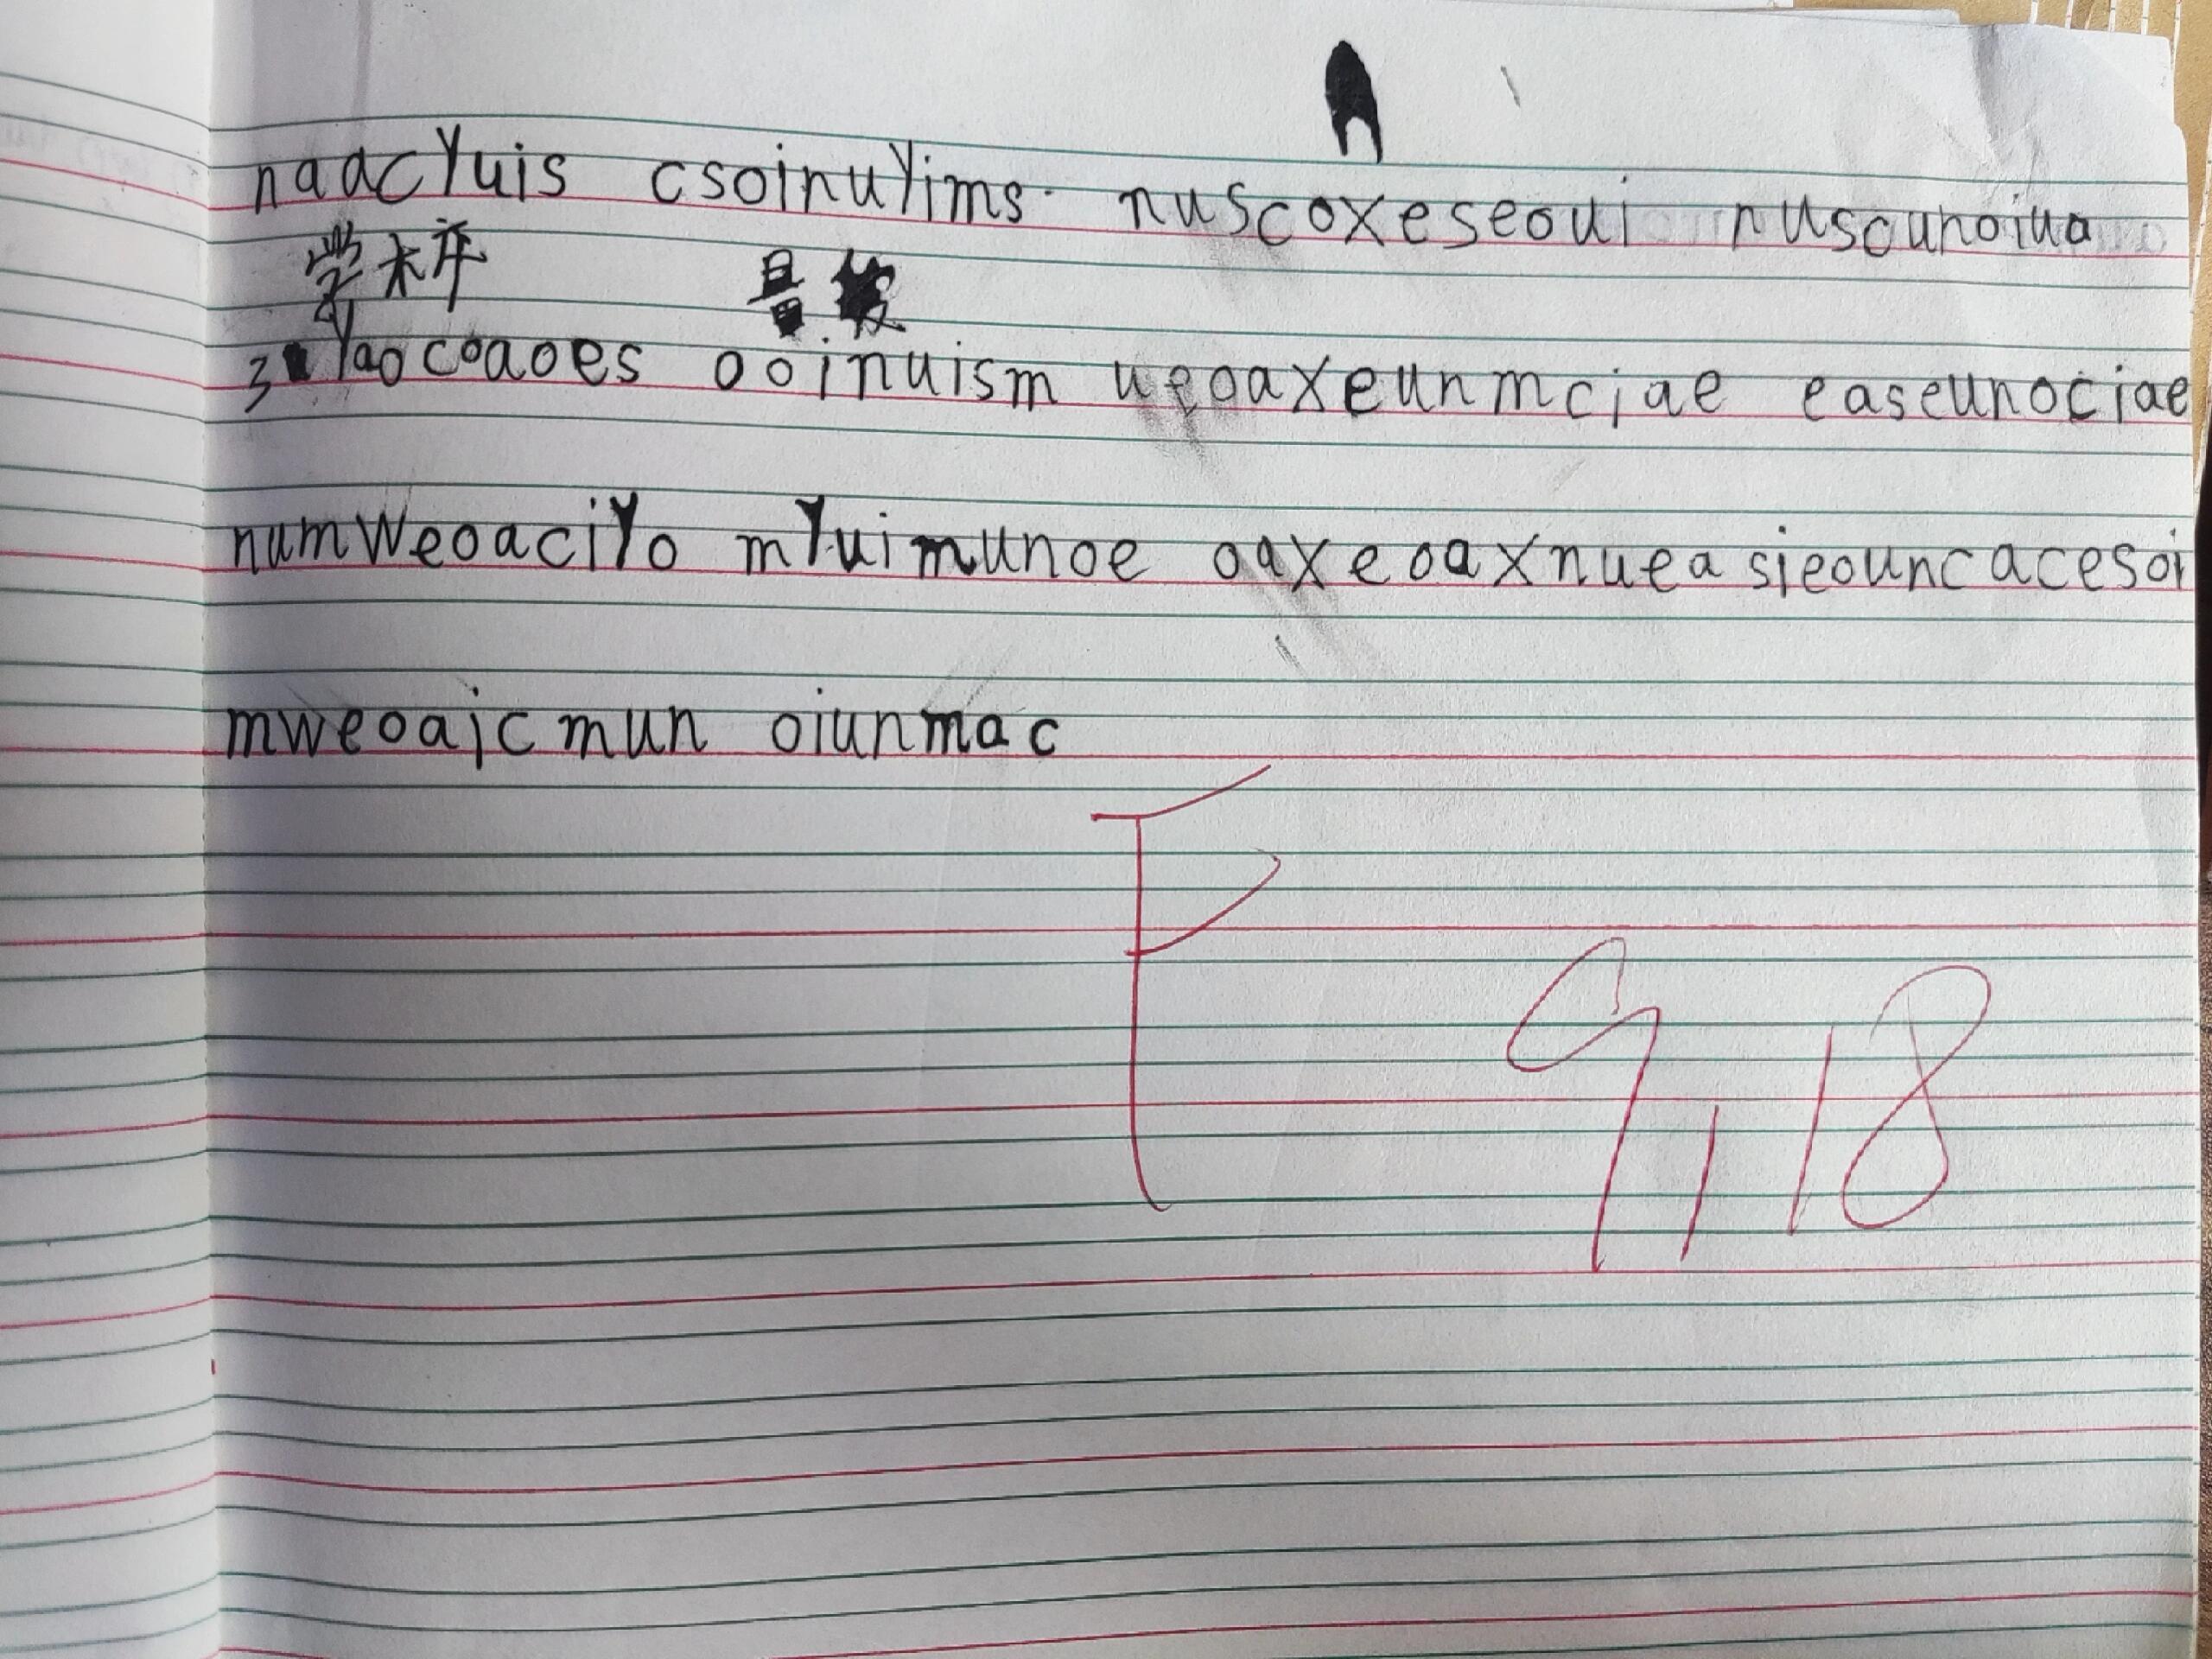 naacyuis csoinuyims. nuscoxeseoui nuscunoiua
yao coaoes ooinuism ueoaxeunmciae easeunociae
numweoaciyo myuimunoe oaxeoaxnuea sieouncacesoi
mweoaicmun oiunmac
9,18